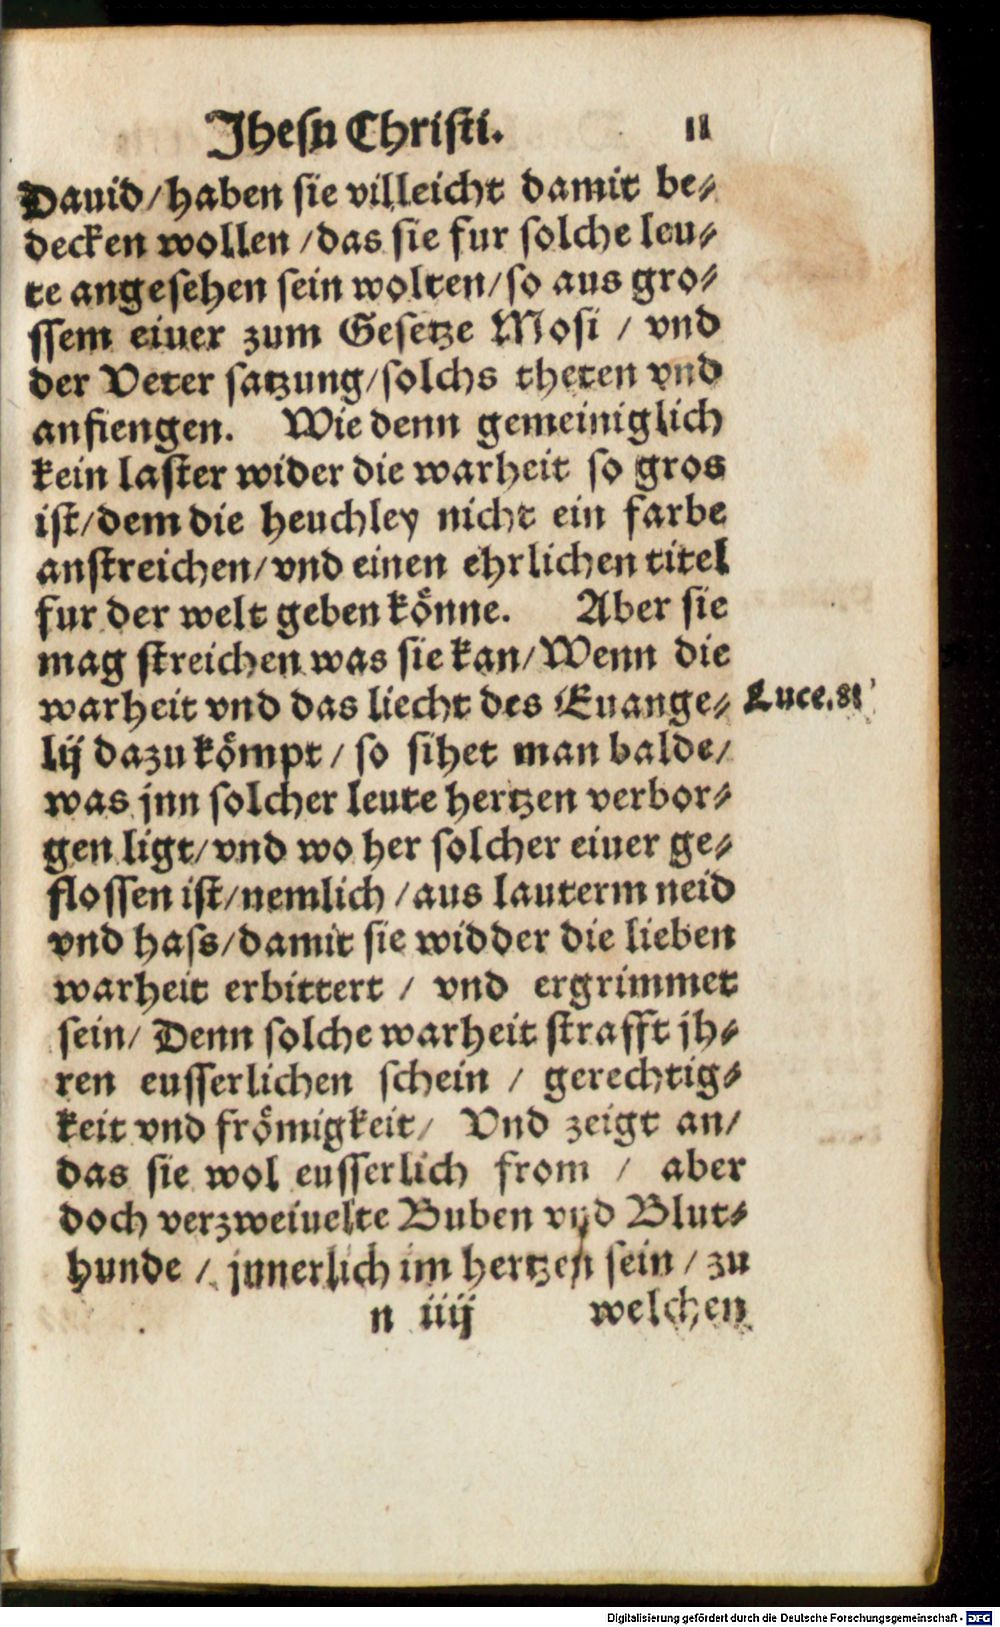 Jhesu Christi. 11
Dauid/haben sie villeicht damit be⸗
decken wollen/das sie fur solche leu⸗
te angesehen sein wolten/so aus gro⸗
ssem eiuer zum Gesetze Mosi / vnd
der Veter satzung/solchs theten vnd
anfiengen. Wie denn gemeiniglich
kein laster wider die warheit so gros
ist/dem die heuchley nicht ein farbe
anstreichen/vnd einen ehrlichen titel
fur der welt geben könne. Aber sie
mag streichen was sie kan/Wenn die
warheit vnd das liecht des Euange⸗
Luce.81
lij dazu kömpt/ so sihet man balde/
was jnn solcher leute hertzen verbor⸗
gen ligt/vnd wo her solcher eiuer ge⸗
flossen ist/nemlich/aus lauterm neid
vnd hass/damit sie widder die lieben
warheit erbittert / vnd ergrimmet
sein/ Denn solche warheit strafft jh⸗
ren eusserlichen schein / gerechtig⸗
keit vnd frömigkeit/ Vnd zeigt an/
das sie wol eusserlich from / aber
doch verzweiuelte Buben vnd Blut⸗
hunde / jnnerlich im hertzen sein/ zu
n iiij welchen
Digitalisierung gefördert durch die Deutsche Forschungsgemeinschaft - DFG